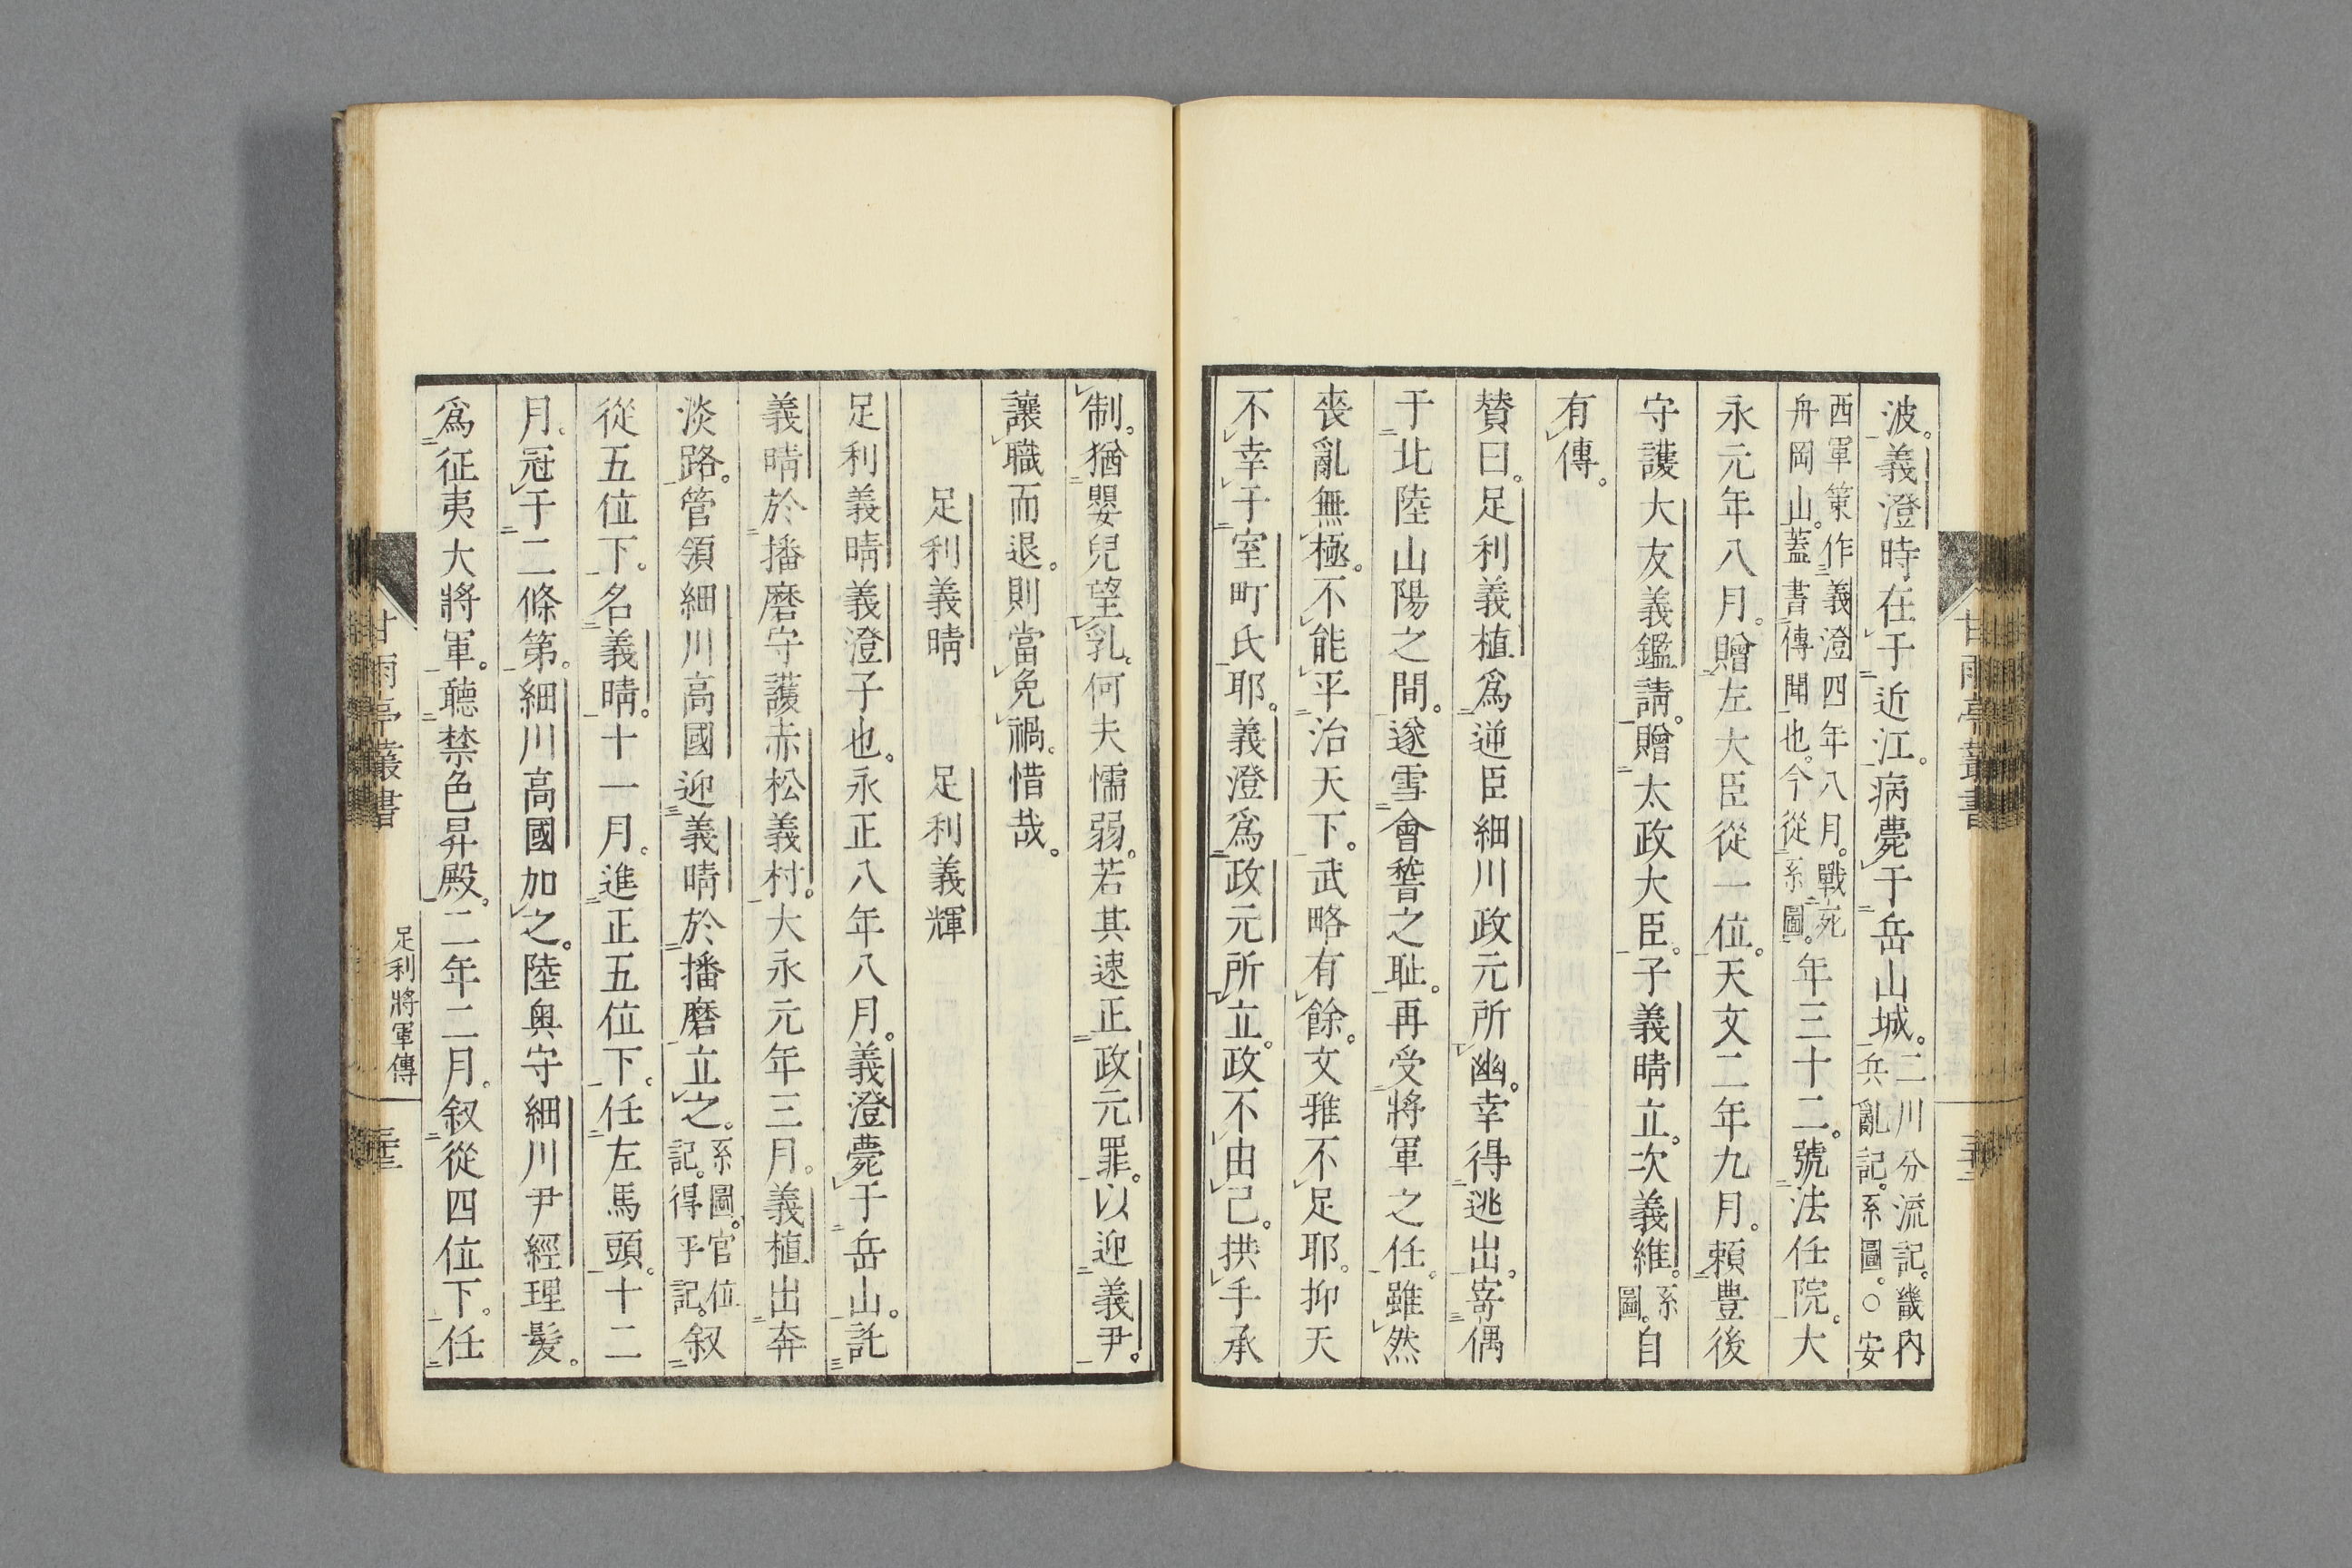 波。義澄時在于近江。病薨于岳山城。二川分流記。畿内兵亂記。系圖。○安
西軍策作義澄四年八月。戰死舟岡山。蓋書傳聞也。今從系圖。年三十二。號法任院。大
永元年八月。贈左大臣從一位。天文二年九月。賴豊後
守護大友義鑑請。贈太政大臣。子義晴立。次義維。系圖。自
有傳。
贊曰。足利義植爲逆臣細川政元所幽。幸得逃出。寄偶
于北陸山陽之間。遂雪會䅲之耻。再受將軍之任。雖然
喪亂無極。不能平治天下。武略有餘。文雅不足耶。抑天
不幸于室町氏耶。義澄爲政元所立。政不由己。拱手承
制。猶嬰兒望乳。何夫懦弱。若其速正政元罪。以迎義尹。
讓職而退。則當免禍。惜哉。
足利義晴　足利義輝
足利義晴義澄子也。永正八年八月。義澄薨于岳山。託
義晴於播磨守護赤松義村。大永元年三月。義植出奔
淡路。管領細川高國迎義晴於播磨立之。系圖。官位記。得乎記。叙
從五位下。名義晴。十一月。進正五位下。任左馬頭。十二
月。冠于二條第。細川高國加之。陸奥守細川尹經理髪。
爲征夷大將軍。聽禁色昇殿。二年二月。叙從四位下。任
甘雨亭叢書
足利將軍傳